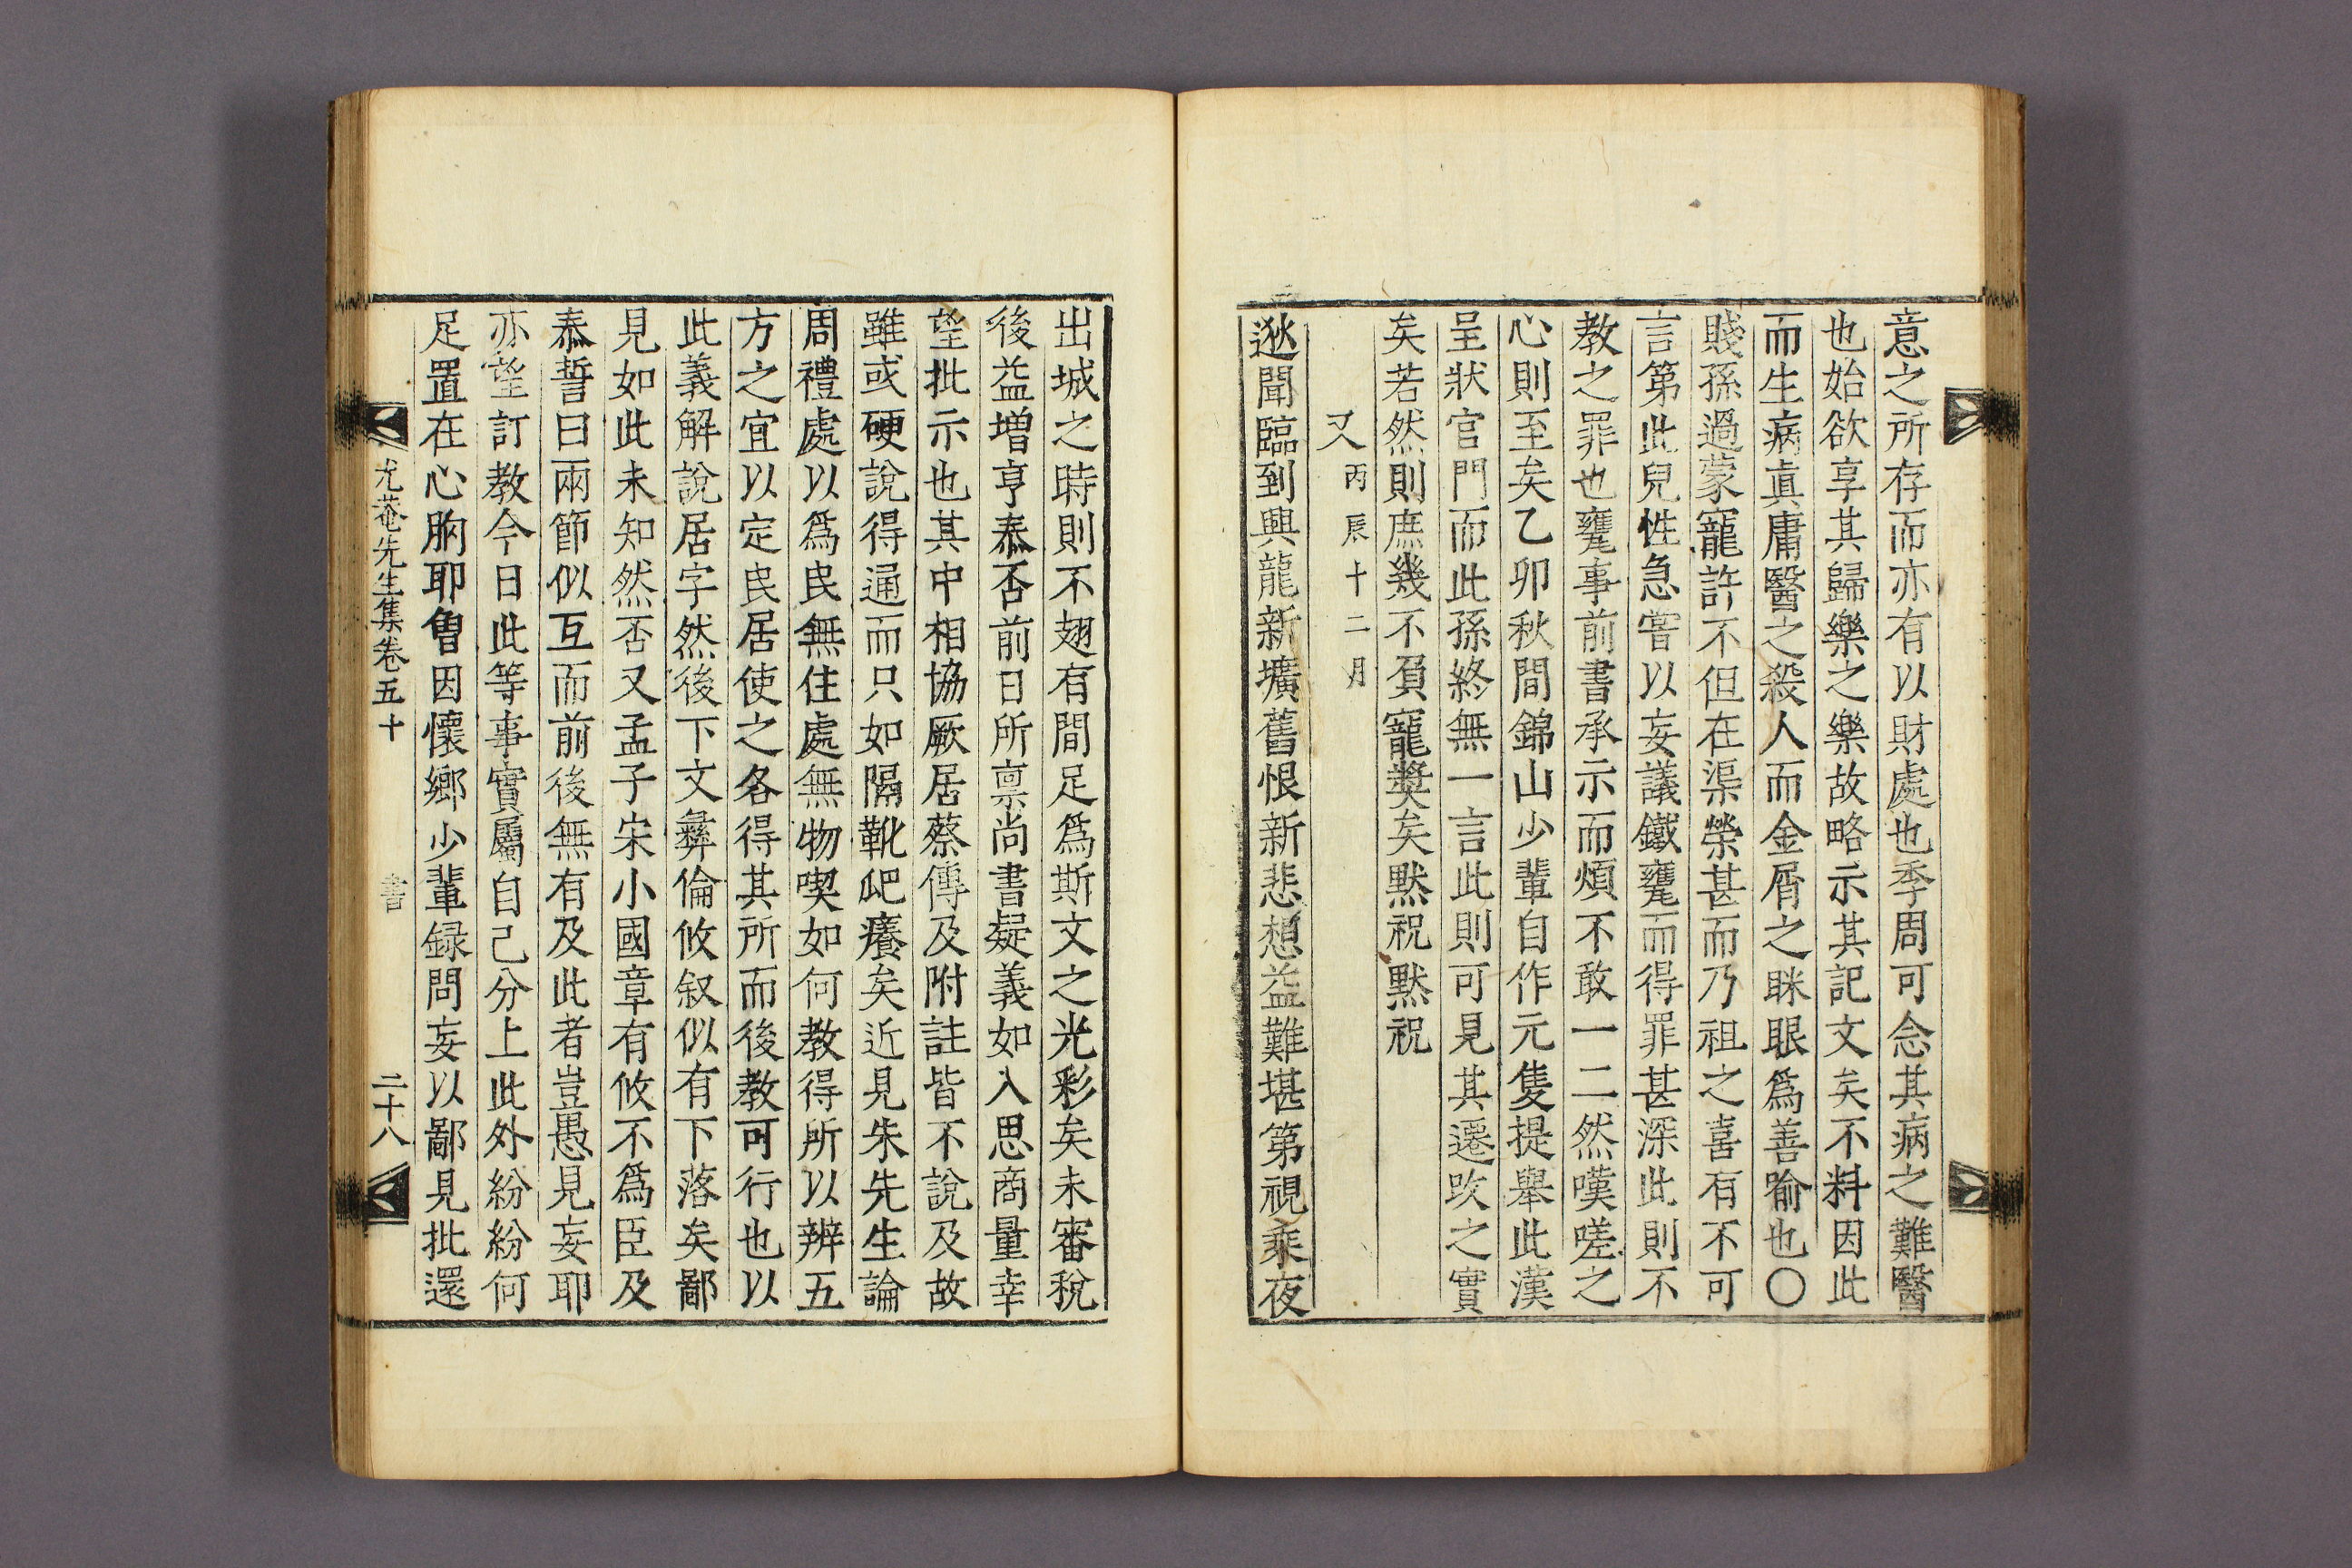 意之所存而亦有以財處也季周可念其病之難醫
也始欲享其歸樂之樂故略示其記文矣不料因此
而生病眞庸醫之殺人而金屑之眯眼爲善喻也〇
賤孫過蒙寵許不但在渠榮甚而乃祖之喜有不可
言第此兒性急嘗以妄議鐵甕而得罪甚深此則不
教之罪也甕事前書承示而煩不敢一二然嘆嗟之
心則至矣乙卯秋間錦山少輩自作元隻提舉此漢
呈狀官門而此孫終無一言此則可見其遷吹之實
矣若然則庶幾不負寵奬矣默祝默祝
又丙辰十二月
逖聞臨到興龍新壙舊恨新悲想益難堪第視乘夜
出城之時則不翅有間足爲斯文之光彩矣未審稅
後益增亨泰否前日所禀尚書疑義如入思商量幸
望批示也其中相協厥居蔡傳及附註皆不說及故
雖或硬說得通而只如隔靴爬癢矣近見朱先生論
周禮處以爲民無住處無物喫如何教得所以辨五
方之宜以定民居使之各得其所而後教可行也以
此義解說居字然後下文彝倫攸叙似有下落矣鄙
見如此未知然否又孟子宋小國章有攸不爲臣及
泰誓曰兩節似互而前後無有及此者豈愚見妄耶
亦望訂教今日此等事實屬自己分上此外紛紛何
足置在心胸耶曾因懷鄉少輩録問妄以鄙見批還
尤菴先生集卷五十
書
二十八